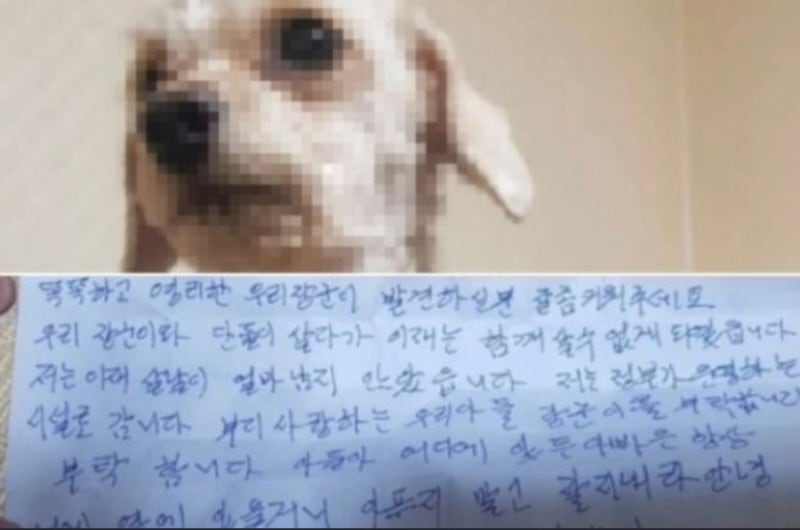 똑똑하고 영리한 우리장군이 발견하실분 잘좀키워주세요
우리 장군이와 단둘이 살다가 이제는 함께 살수 없게 되었습니다
저는 아래 살날이 얼마 남지 안았습니다 저는 정부가 운영하는
시설로 갑니다 부디 사랑하는 우리아들 장군이를 부탁합니다
부탁 합니다 아들아 어디에 있든 아빠은 항상
아프지 말고 잘지내라 안녕